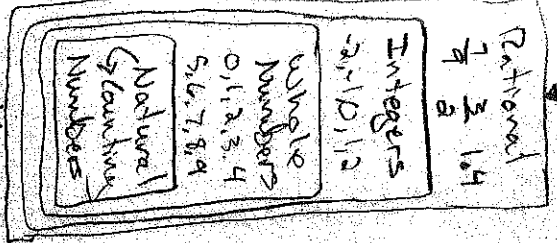 Rational
7/9 3/2 1.4
Integers
-2,-1,0,1,2
Whole
Numbers
0,1,2,3,4
5,6,7,8,9
Natural
↳Counting
Numbers